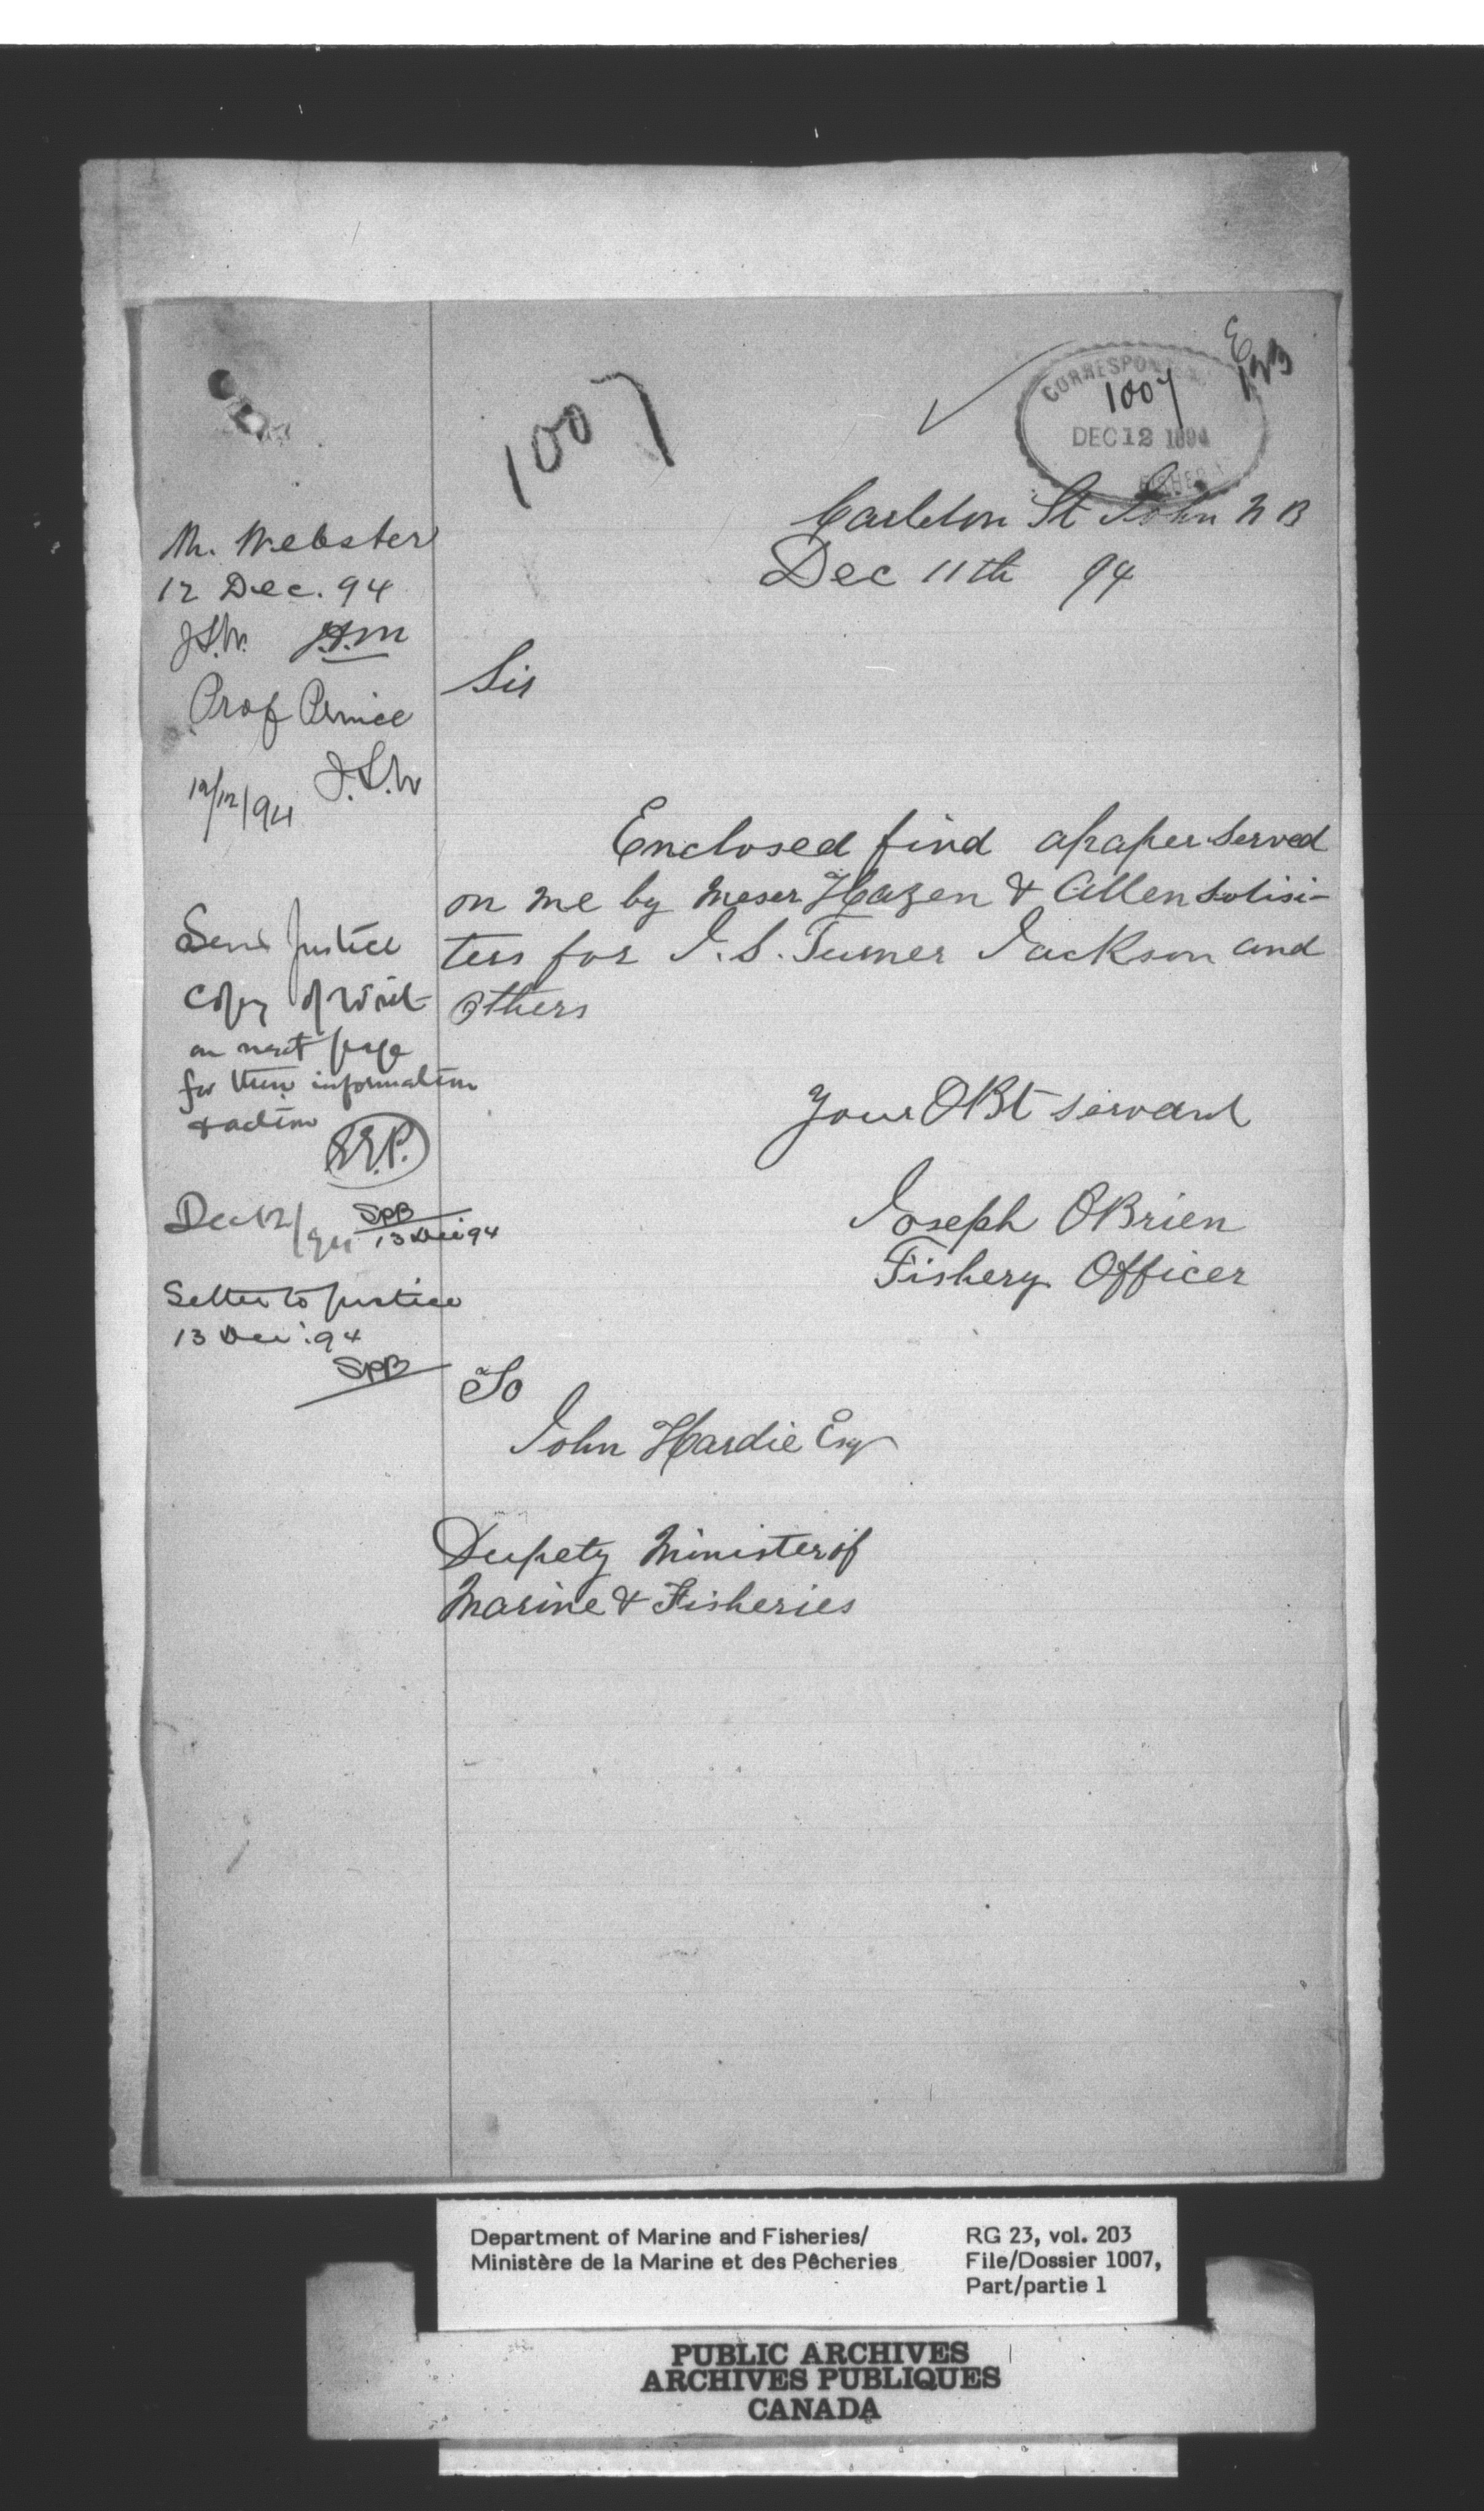 1007
CORRESPON
1007
DEC 12 1894
FISHER
Carleton St John N B
Dec 11th 94
Sir
Enclosed find a paper served
on me by Meser Hazen & Allen Solisi-
ters for J. S. Turner Jackson and
others
Your OBt servant
Joseph OBrien
Fishery Officer
To
John Hardie Esq
Dupety Minister of
Marine & Fisheries
M. Webster
12 Dec. 94
J.S.W. J.H.M
Prof Prince
J.S.W
12/12/94
Send Justice
copy of Writ
on next page
for their information
& action
E.E.P.
Dec 12/94 SPB
13 Dec 94
Letter to Justice
13 Dec. 94
SPB
Department of Marine and Fisheries/
Ministère de la Marine et des Pêcheries
RG 23, vol. 203
File/Dossier 1007,
Part/partie 1
PUBLIC ARCHIVES
ARCHIVES PUBLIQUES
CANADA